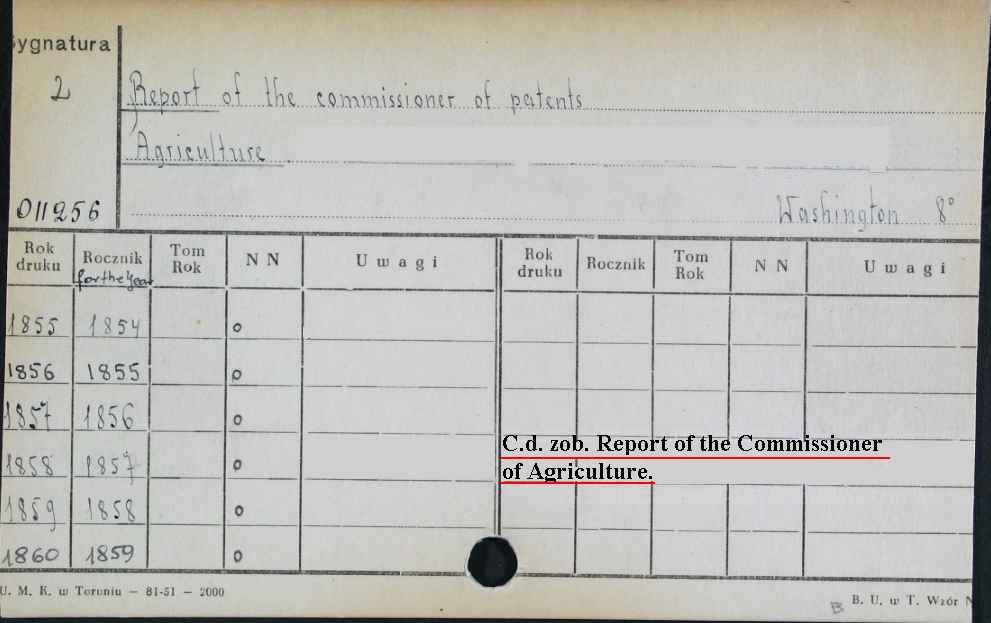 Sygnatura
2
Report of the commissioner of patents
Agriculture
011256
Washington 8°
Rok druku Rocznik for the Year Tom Rok N N Uwagi Rok druku Rocznik Tom Rok N N Uwagi
1855 1854 o
1856 1855 o
1857 1856 o
1858 1857 o
1859 1858 o
1860 1859 o
C.d. zob. Report of the Commissioner
of Agriculture.
U. M. K. w Toruniu — 81-51 — 2000
B B. U. w T. Wzór